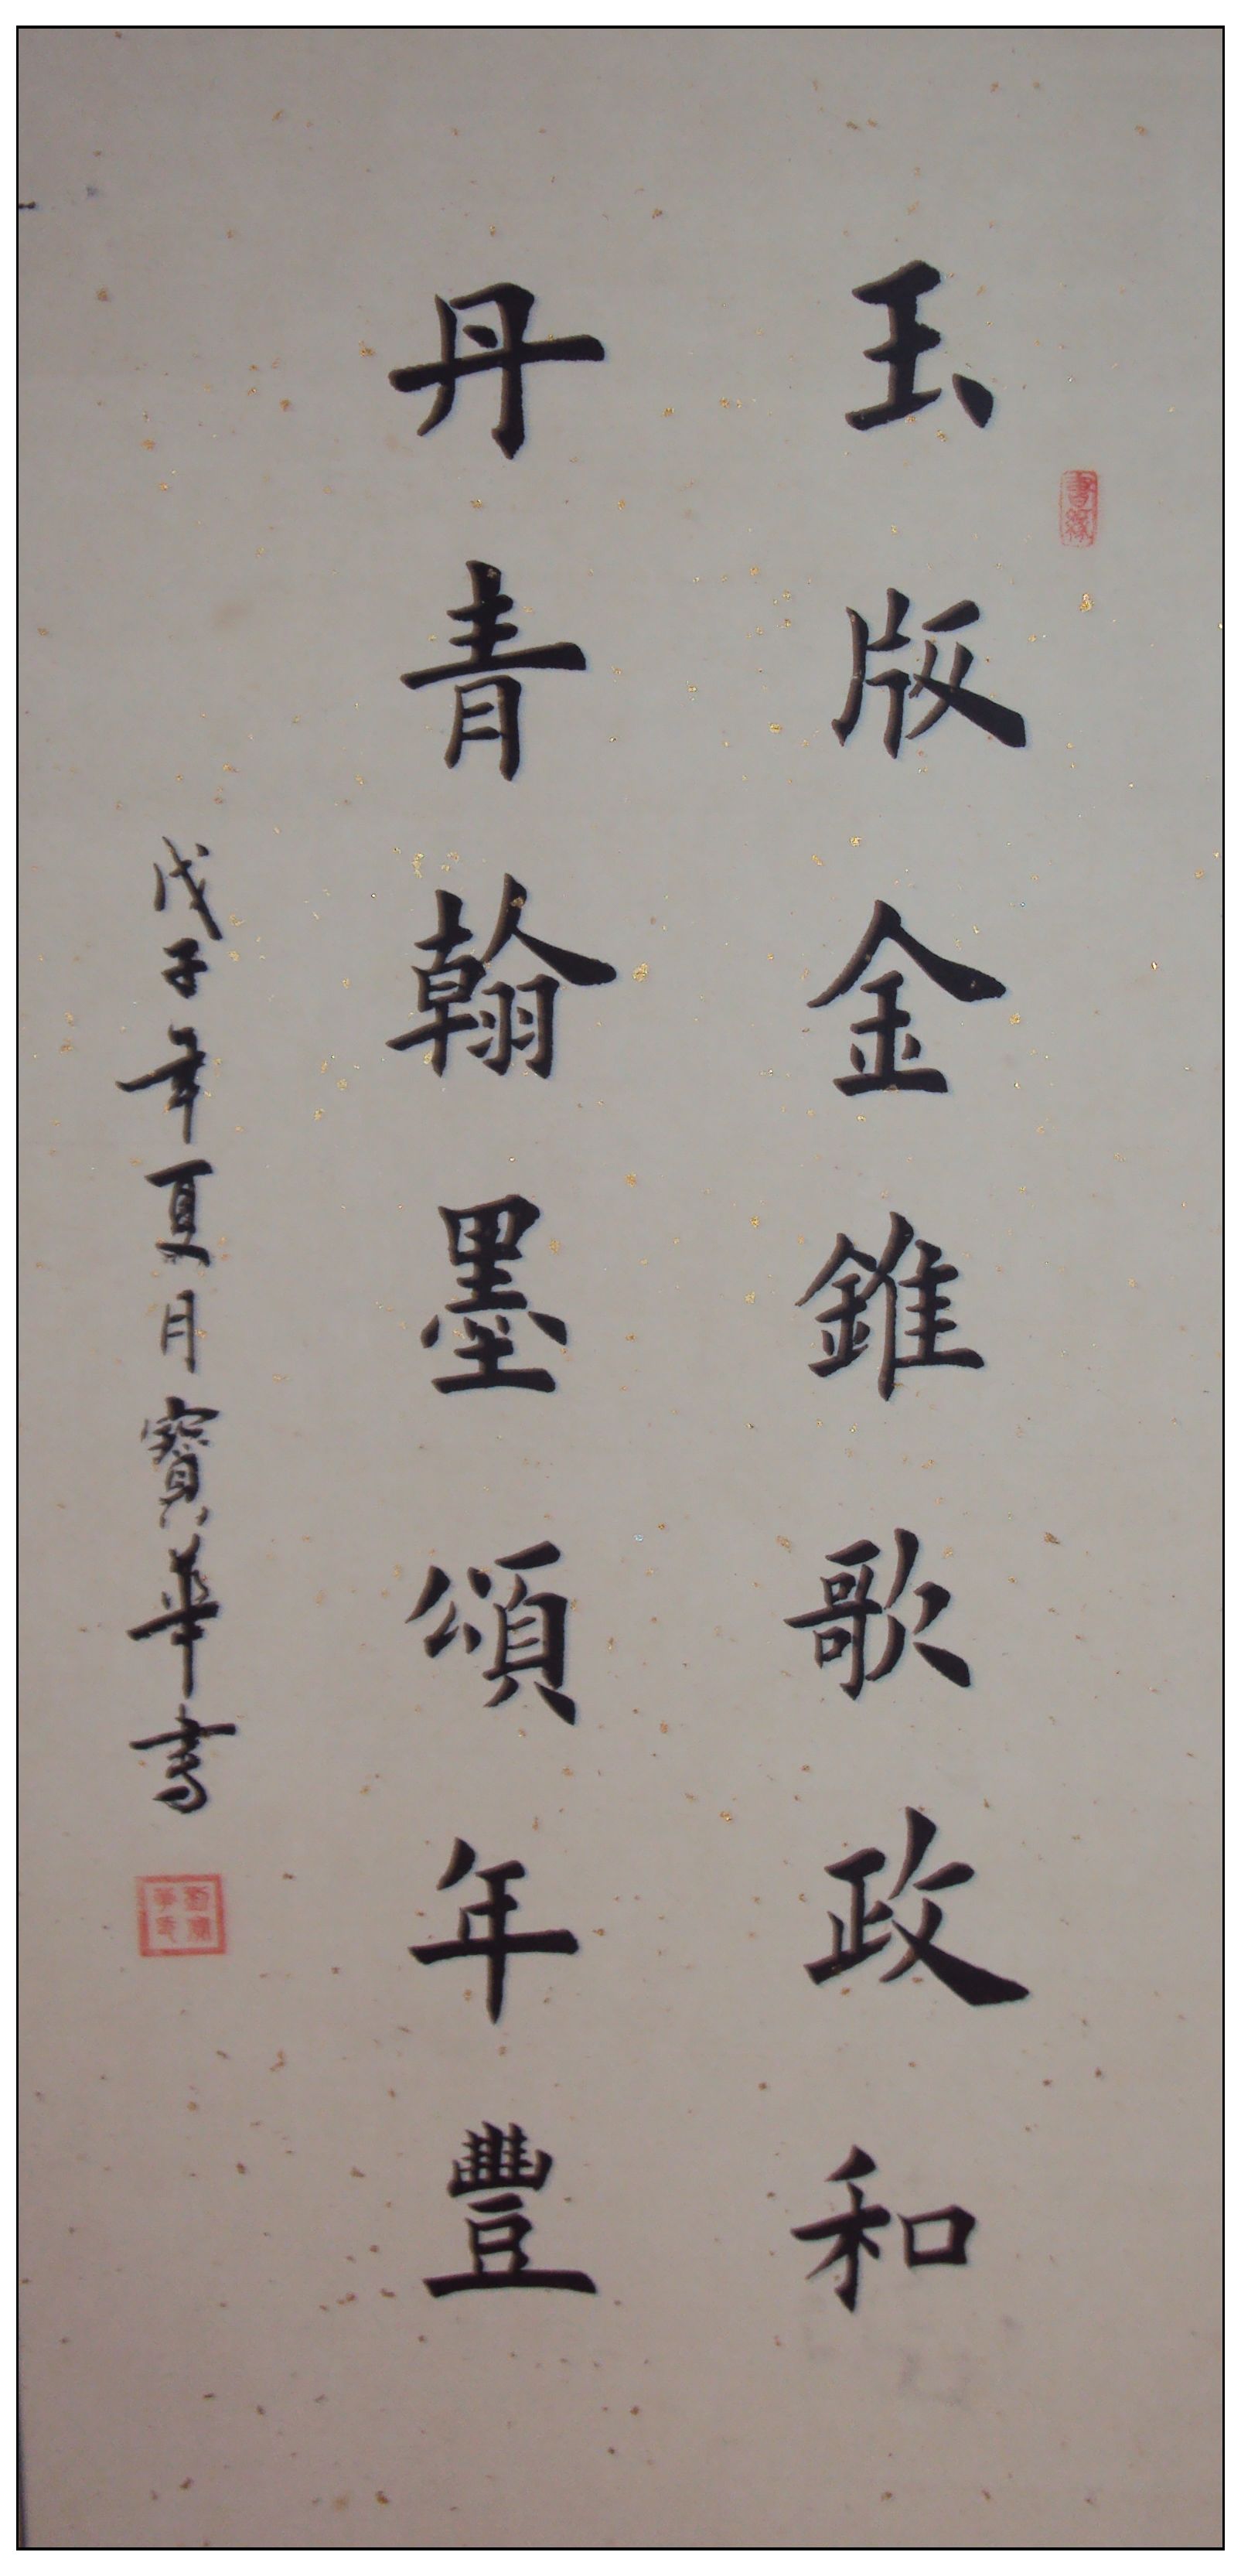 玉版金錐歌政和
丹青翰墨頌年豐
戊子年夏月寶華書
書緣